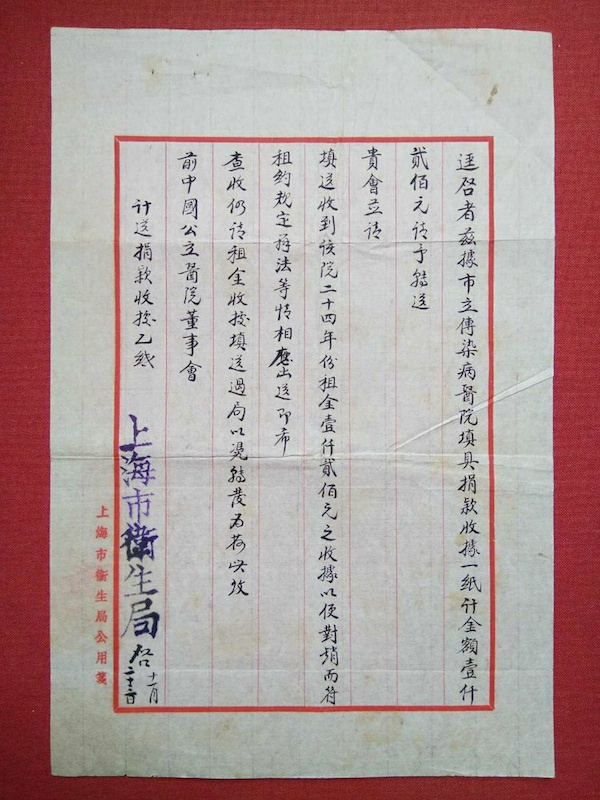 逕啓者茲據市立傳染病醫院填具捐款收據一紙計金額壹仟
貳佰元請予轉送
貴會並請
填送收到該院二十四年份租金壹仟貳佰元之收據以便對銷而符
租約規定辦法等情相應出送即希
查收仍請租金收據填送過局以凭轉發為荷此致
前中國公立醫院董事會
計送捐款收據乙紙
上海市衛生局 啓 十一月
上海市衛生局公用箋